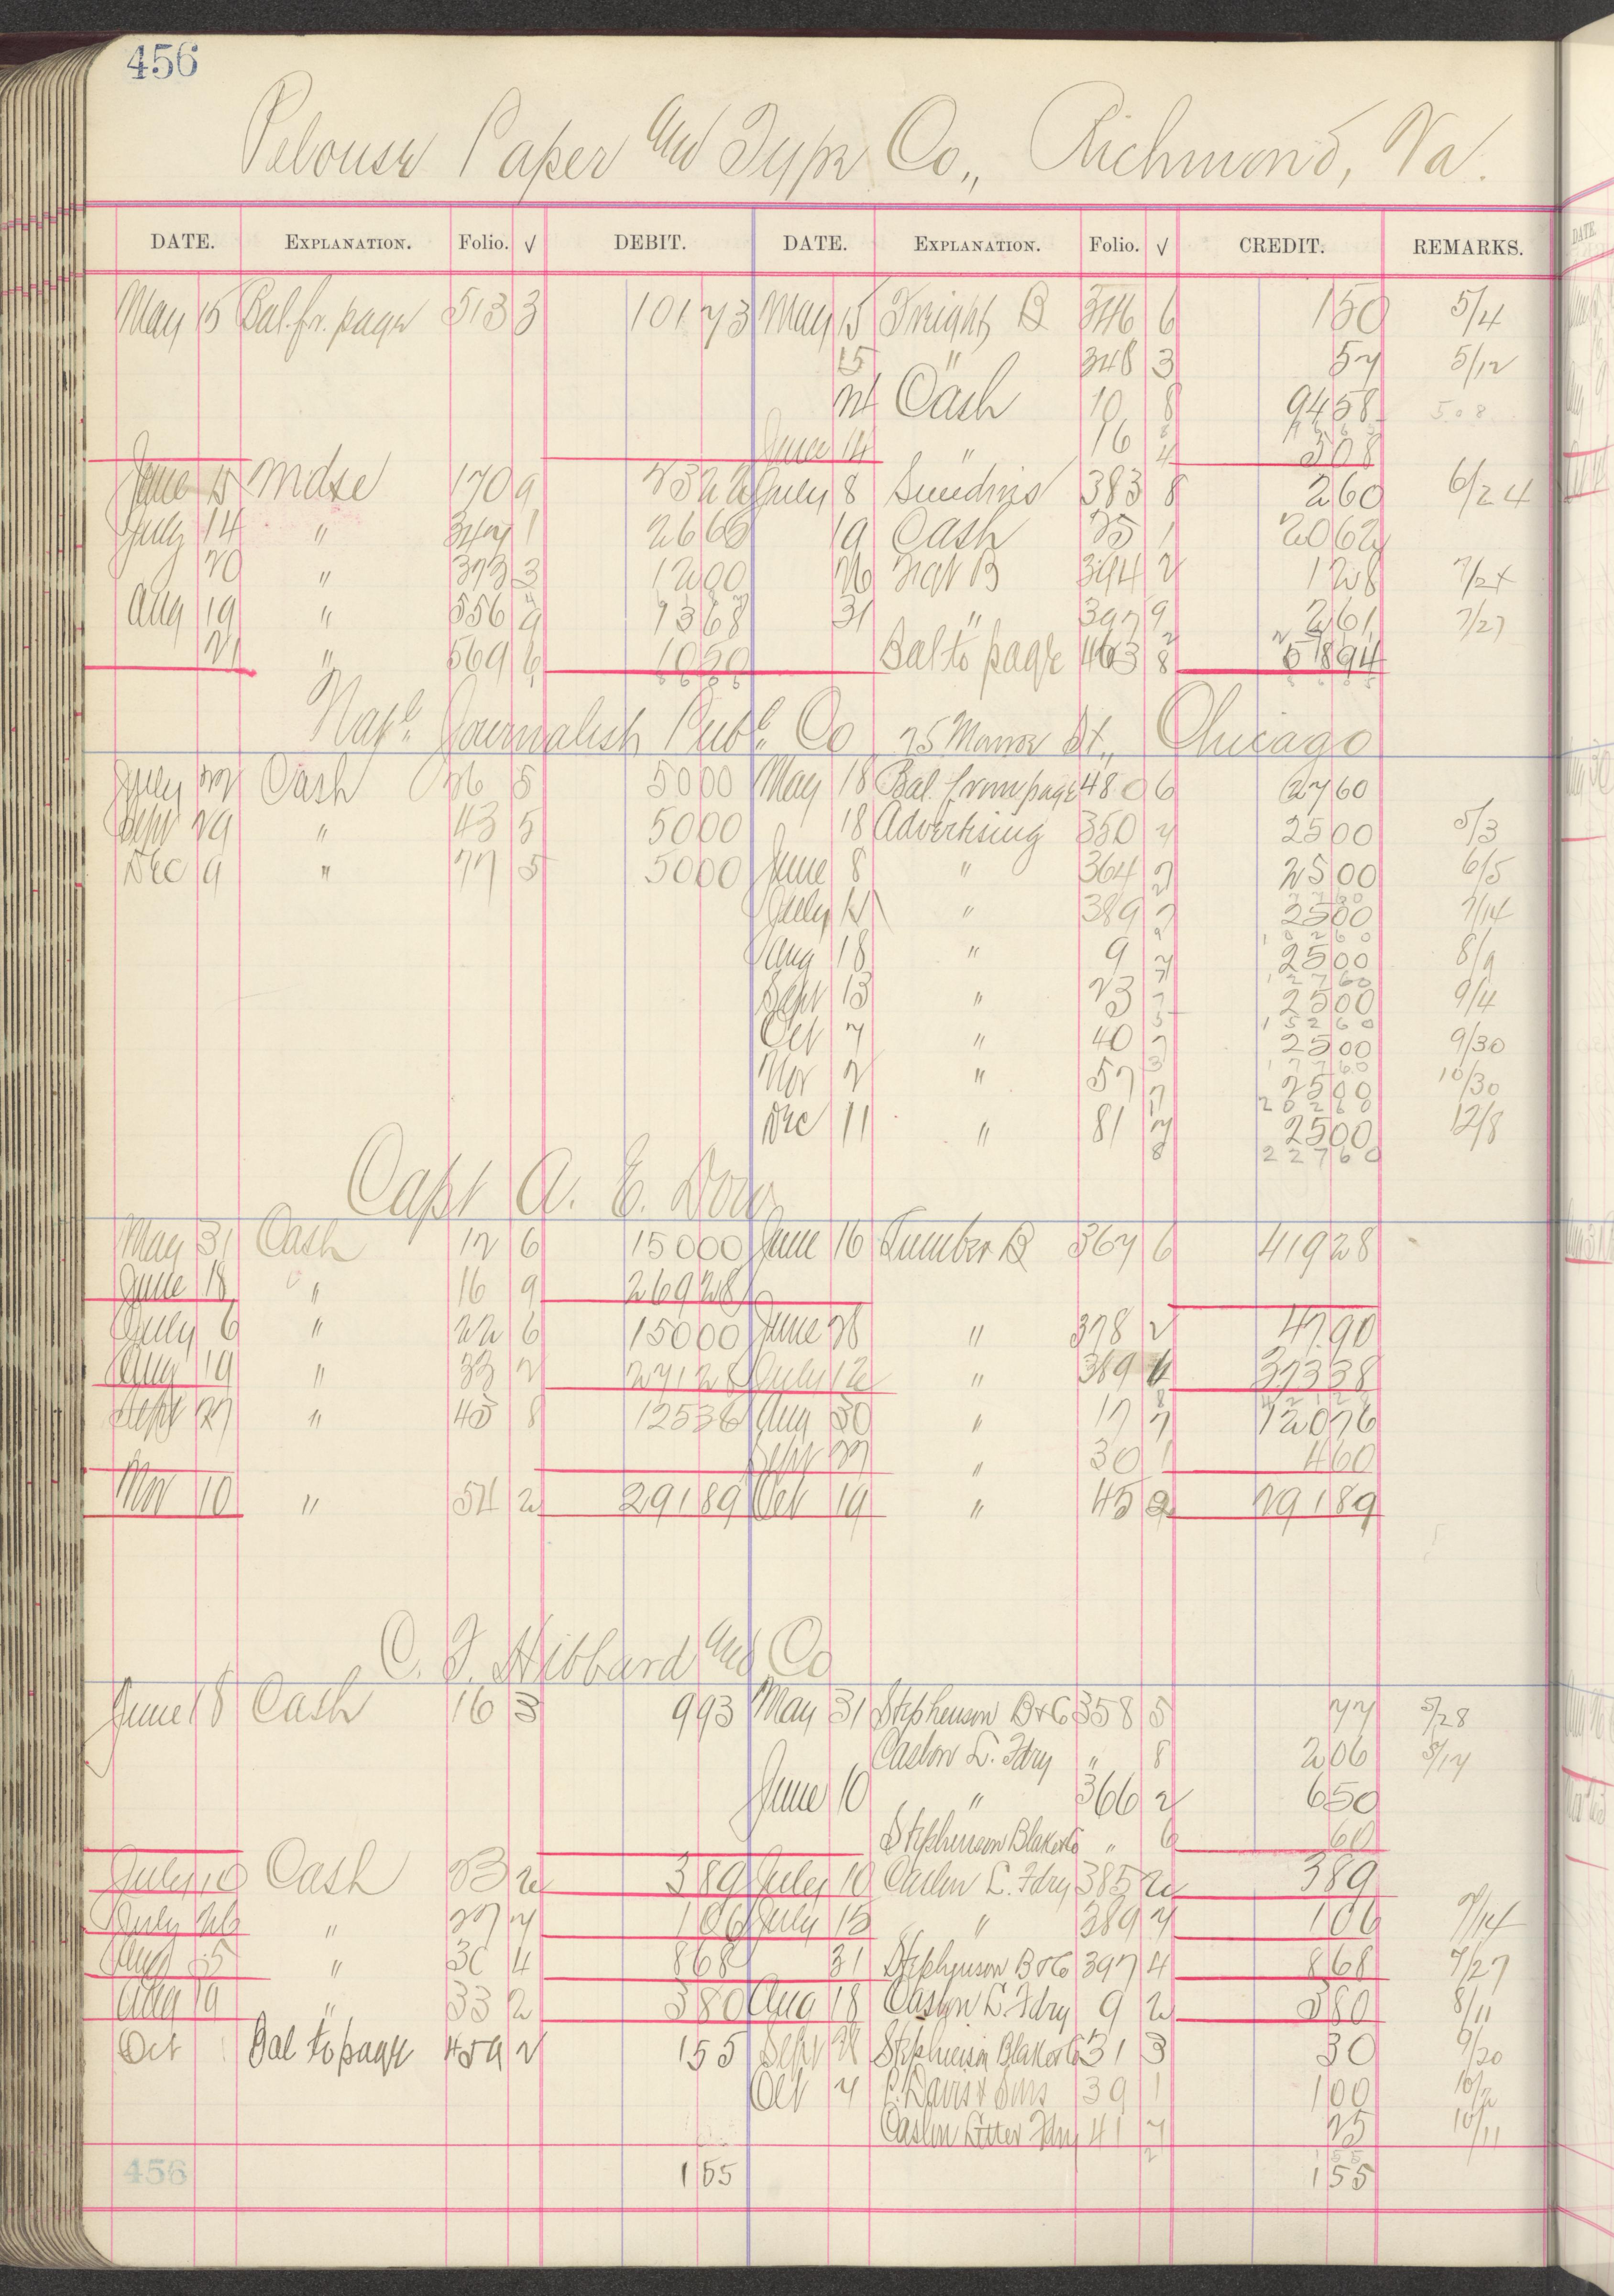 456
Pelouse Paper and Type Co., Richmond, Va.
DATE. EXPLANATION. Folio. √ DEBIT. DATE. EXPLANATION. Folio. √ CREDIT. REMARKS.
May 15 Bal. fr. page 513 3 101 73 May 15 Freight B 346 6 1 50 5/4
15 " 348 3 57 5/12
Cash 10 8 94 58
June 14 " 16 4 5 08
June 15 Mdse 170 9 July 8 Sundries 383 8 2 60 6/24
July 14 " 1 26 60 19 Cash 25 1 20 62
20 " 373 3 12 00 26 Frgt B 394 2 1 28
Aug 19 " 556 13 68 31 " 397 9 2 61 7/27
21 " 569 6 10 50 Bal to page 463 8 51 94
Nat'l. Journalist Publ. Co 75 Monroe St., Chicago
July 22 Cash 26 5 50 00 May 18 Bal. from page 480 6 27 60
Sept 29 " 43 5 50 00 18 Advertising 350 7 25 00 5/3
Dec 9 " 77 5 50 00 June 8 " 364 7 25 00 6/5
July " 389 7 25 00 7/14
Aug 18 " 9 7 25 00 8/9
102 60
Sept 13 " 23 7 25 00 9/4
127 60
Oct 7 " 40 7 25 00 9/30
152 60
Nov 2 " 57 7 25 00 10/30
177 60
Dec 11 " 81 7 25 00 12/8
202 60
227 60
Capt A. E. Dow
May 31 Cash 12 6 150 00 June 16 Lumber B 367 6 419 28
June 18 " 16 9 269 28
July 6 " 22 6 150 00 June 28 " 378 2 47 90
Aug 19 " 33 2 271 28 July 12 " 389 373 38
Sept 27 " 43 8 125 36 Aug 30 " 17 7 120 76
Sept 27 " 30 1 4 60
Nov 10 " 54 2 291 89 Oct 19 " 45 2 291 89
C. F. Hibbard and Co
June 18 Cash 16 3 9 93 May 31 Stephenson B & Co 358 5 77 5/28
Caslon L. Fdry " 8 2 06 5/17
June 10 " 366 2 6 50
Stephenson Blake & Co " 6 60
July 10 Cash 23 2 3 89 July 10 Caslon L. Fdry 385 2 3 89
July 26 " 27 7 1 06 July 13 " 389 7 1 06 7/14
Aug " 30 4 8 68 31 Stephenson B & Co 397 4 8 68 7/27
Aug 19 " 33 2 3 80 Aug 18 Caslon L. Fdry 9 2 3 80 8/11
Oct Bal to page 459 2 1 55 Sept 28 Stephenson Blake & Co 31 3 30 9/20
Oct 7 Davis & Sons 39 1 1 00 10/2
Caslon Letter Fdry 41 7 25 10/11
456 1 55 1 55